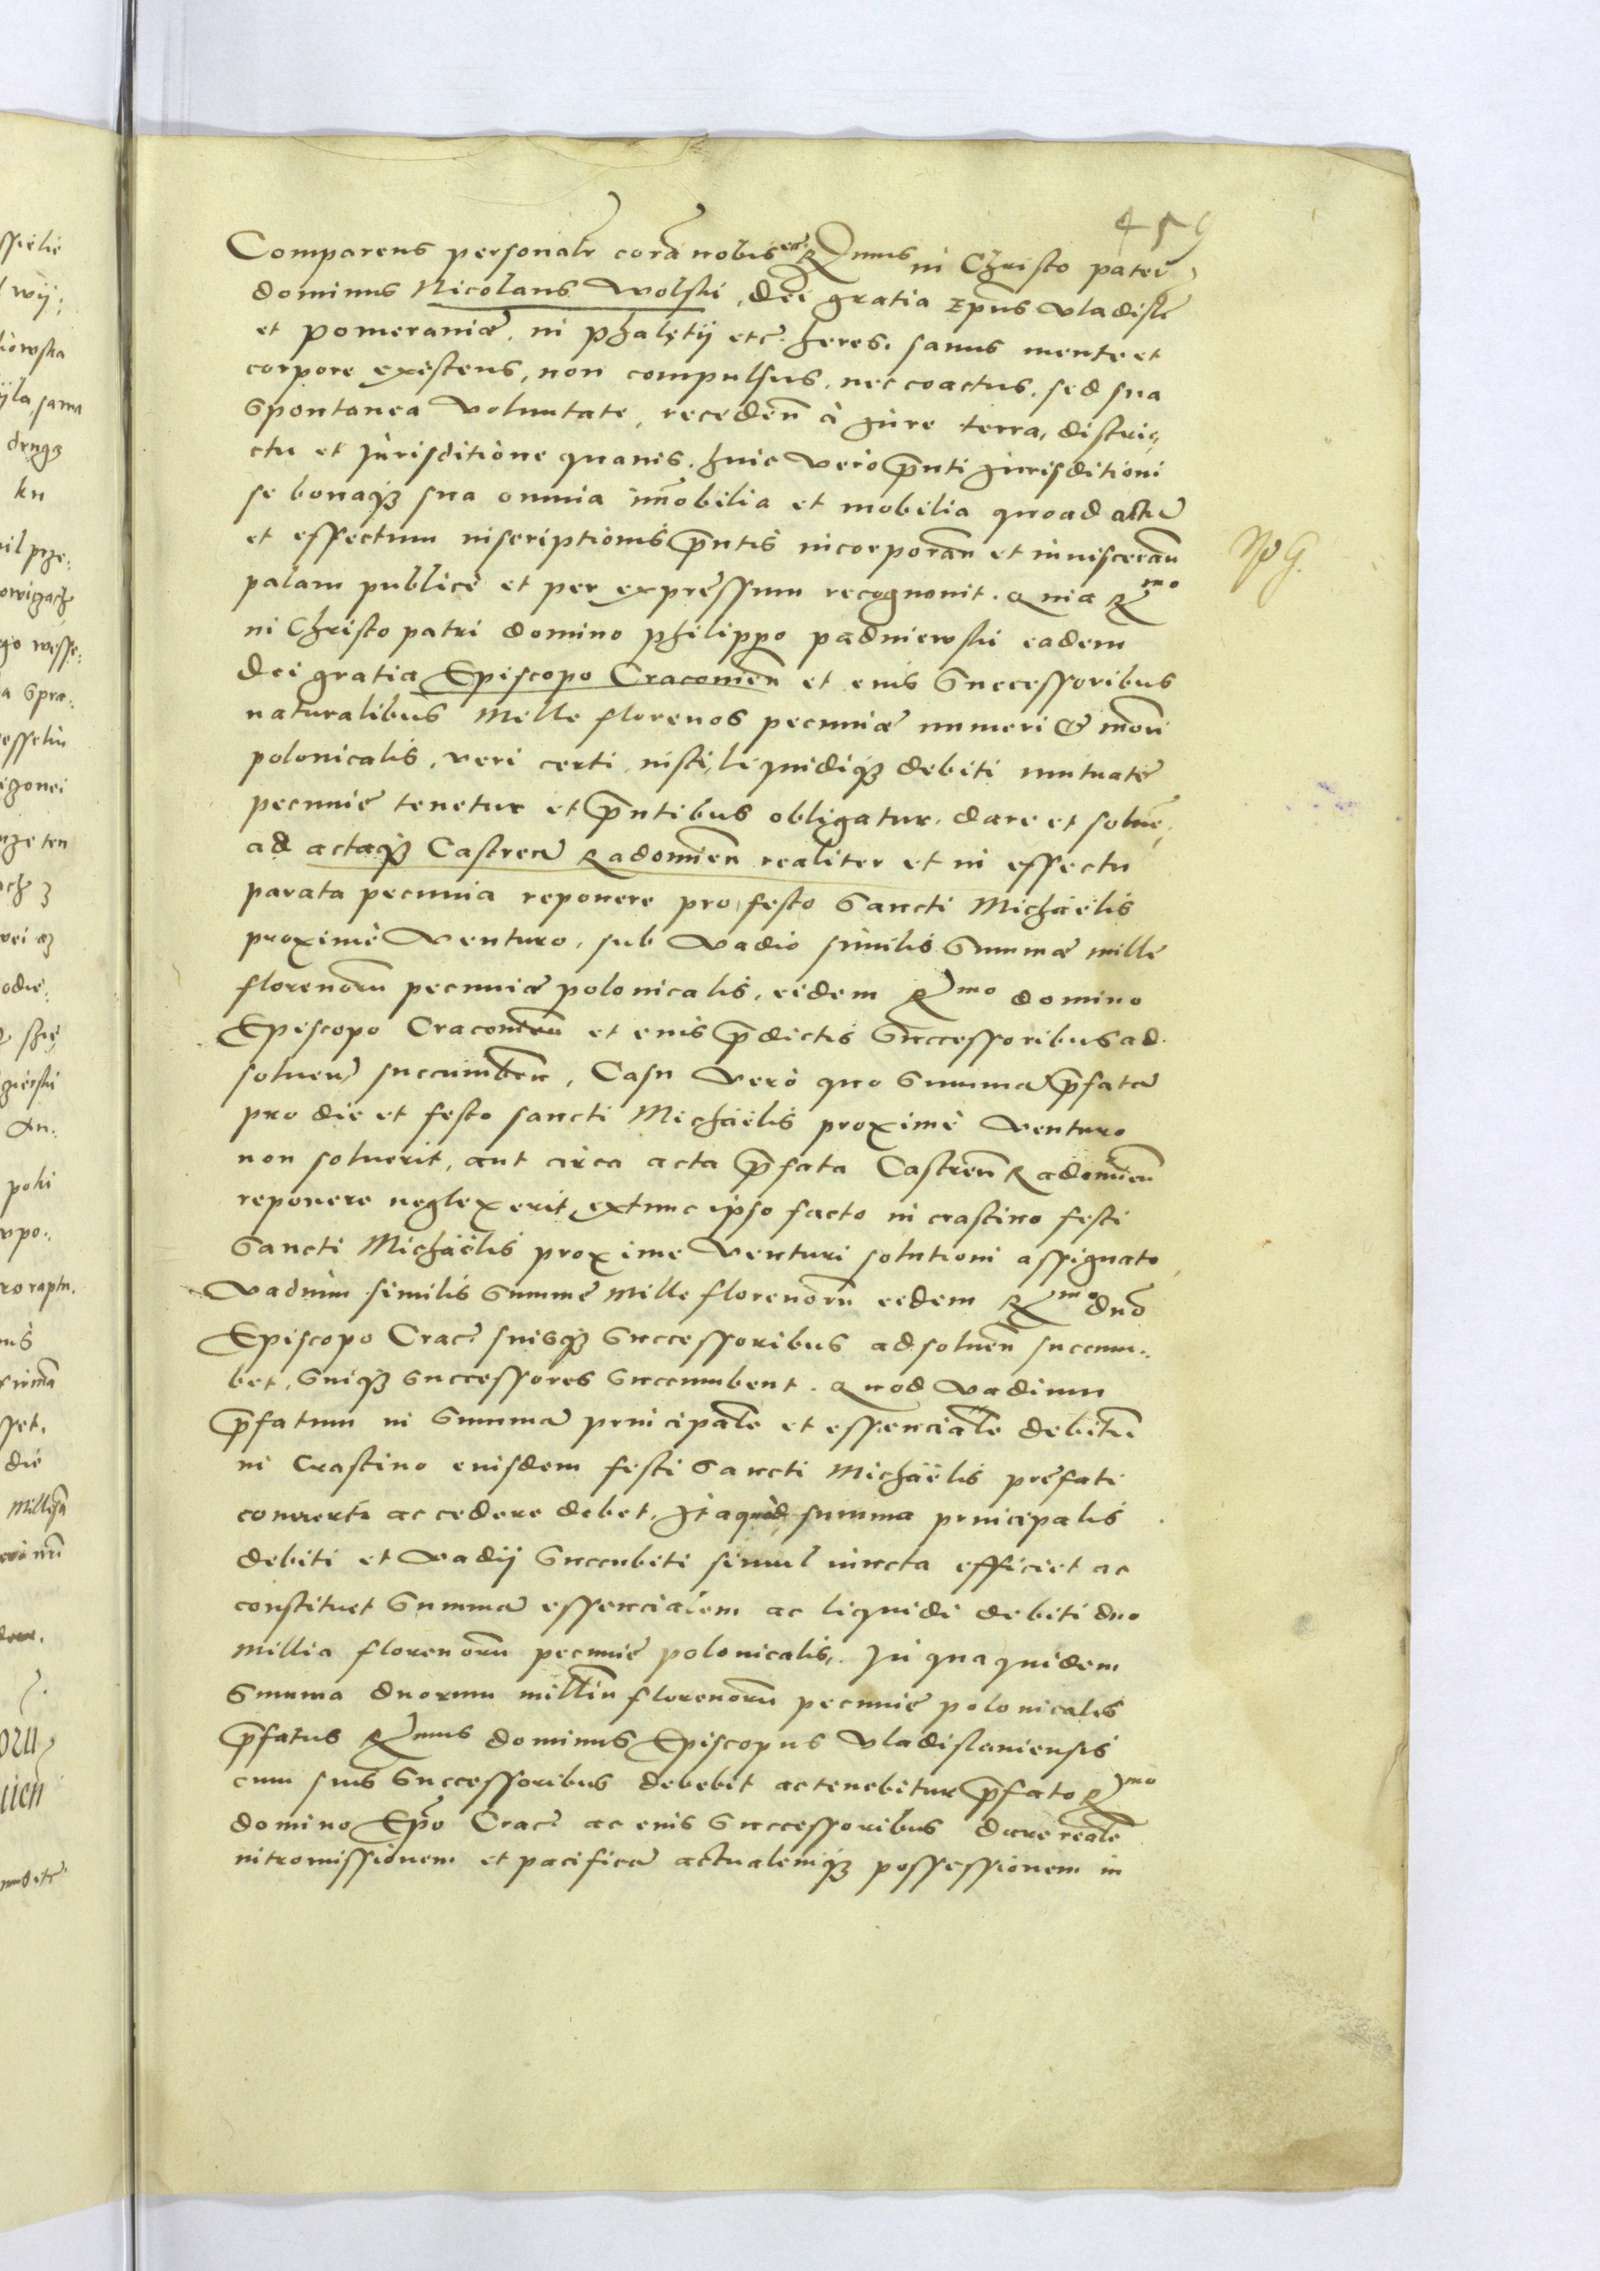 459
Comparens personalr corã nobis etc. Rmus in Christo pater
dominus Nicolaus Wolski, dei gratia Epus Vladisl
et pomeraniæ, in phalętij etc. heres. sanus mente et
corpore existens, non compulsus, nec coactus, sed sua
spontanea voluntate, recedeñ à jure terra, distri,,
ctu et Jurisditione quauis. huic vero p̃nti jurisditioni
se bonaqꝫ sua omnia im̃obilia et mobilia quoad actũ
et effectum inscriptionis p̃ntis incorporañ et inuisceran̄
palam publicè et per expressum recognouit. Quia Rmo
in Christo patri domino Philippo padniewski eadem
Dei gratia Episcopo Cracouieñ et eius successoribus
naturalibus Mille florenos pecuniæ numeri & monꝫ
polonicalis, veri certi iusti, liquidiqꝫ debiti mutuatę
pecunię tenetur et p̃ntibus obligatur, dare et soluẽ,
ad actaqꝫ Castreñ Radomieñ realiter et in effectu
parata pecunia reponere pro festo Sancti Michaëlis
proximè venturo, sub vadio similis Summæ mille
florenorũ pecuniæ polonicalis, eidem Rmo domino
Episcopo Cracouieñ et eius p̃dictis Successoribus ad
soluenð succumbeñ, Casu verò quo Summã p̃fatã
pro die et festo sancti Michaëlis proximè venturo
non soluerit, aut circa acta p̃fata Castreñ Radomieñ
reponere neglexerit, extunc ipso facto in crastino festi
Sancti Michaëlis proxime venturi solutioni assignato
Vadium similis Summę Mille florenorũ eidem Rmo dño
Episcopo Crac: suisqꝫ Successoribus ad soluenð succum,,
bet, Suiqꝫ successores succumbent. Quod Vadium
p̃fatum in Summã principalẽ et essencialẽ debitũ
in Crastino eiusdem festi Sancti Michaëlis prefati
conuerti accedere debet, Ita quod summa principalis
debiti et vadij Succubiti simul iuncta efficiet ac
constituet Summã essencialem ac liquidi debiti duo
Millia florenorũ pecunię polonicalis. In qua quidem
Summa duorum milliũ florenorũ pecunię polonicalis
p̃fatus Rmus dominus Episcopus Vladislauiensis
cum suis Successoribus debebit ac tenebitur p̃fato Rmo
domino Epo Crac: ac eius Successoribus dare realẽ
intromissionem et pacificã actualemqꝫ possessionem in